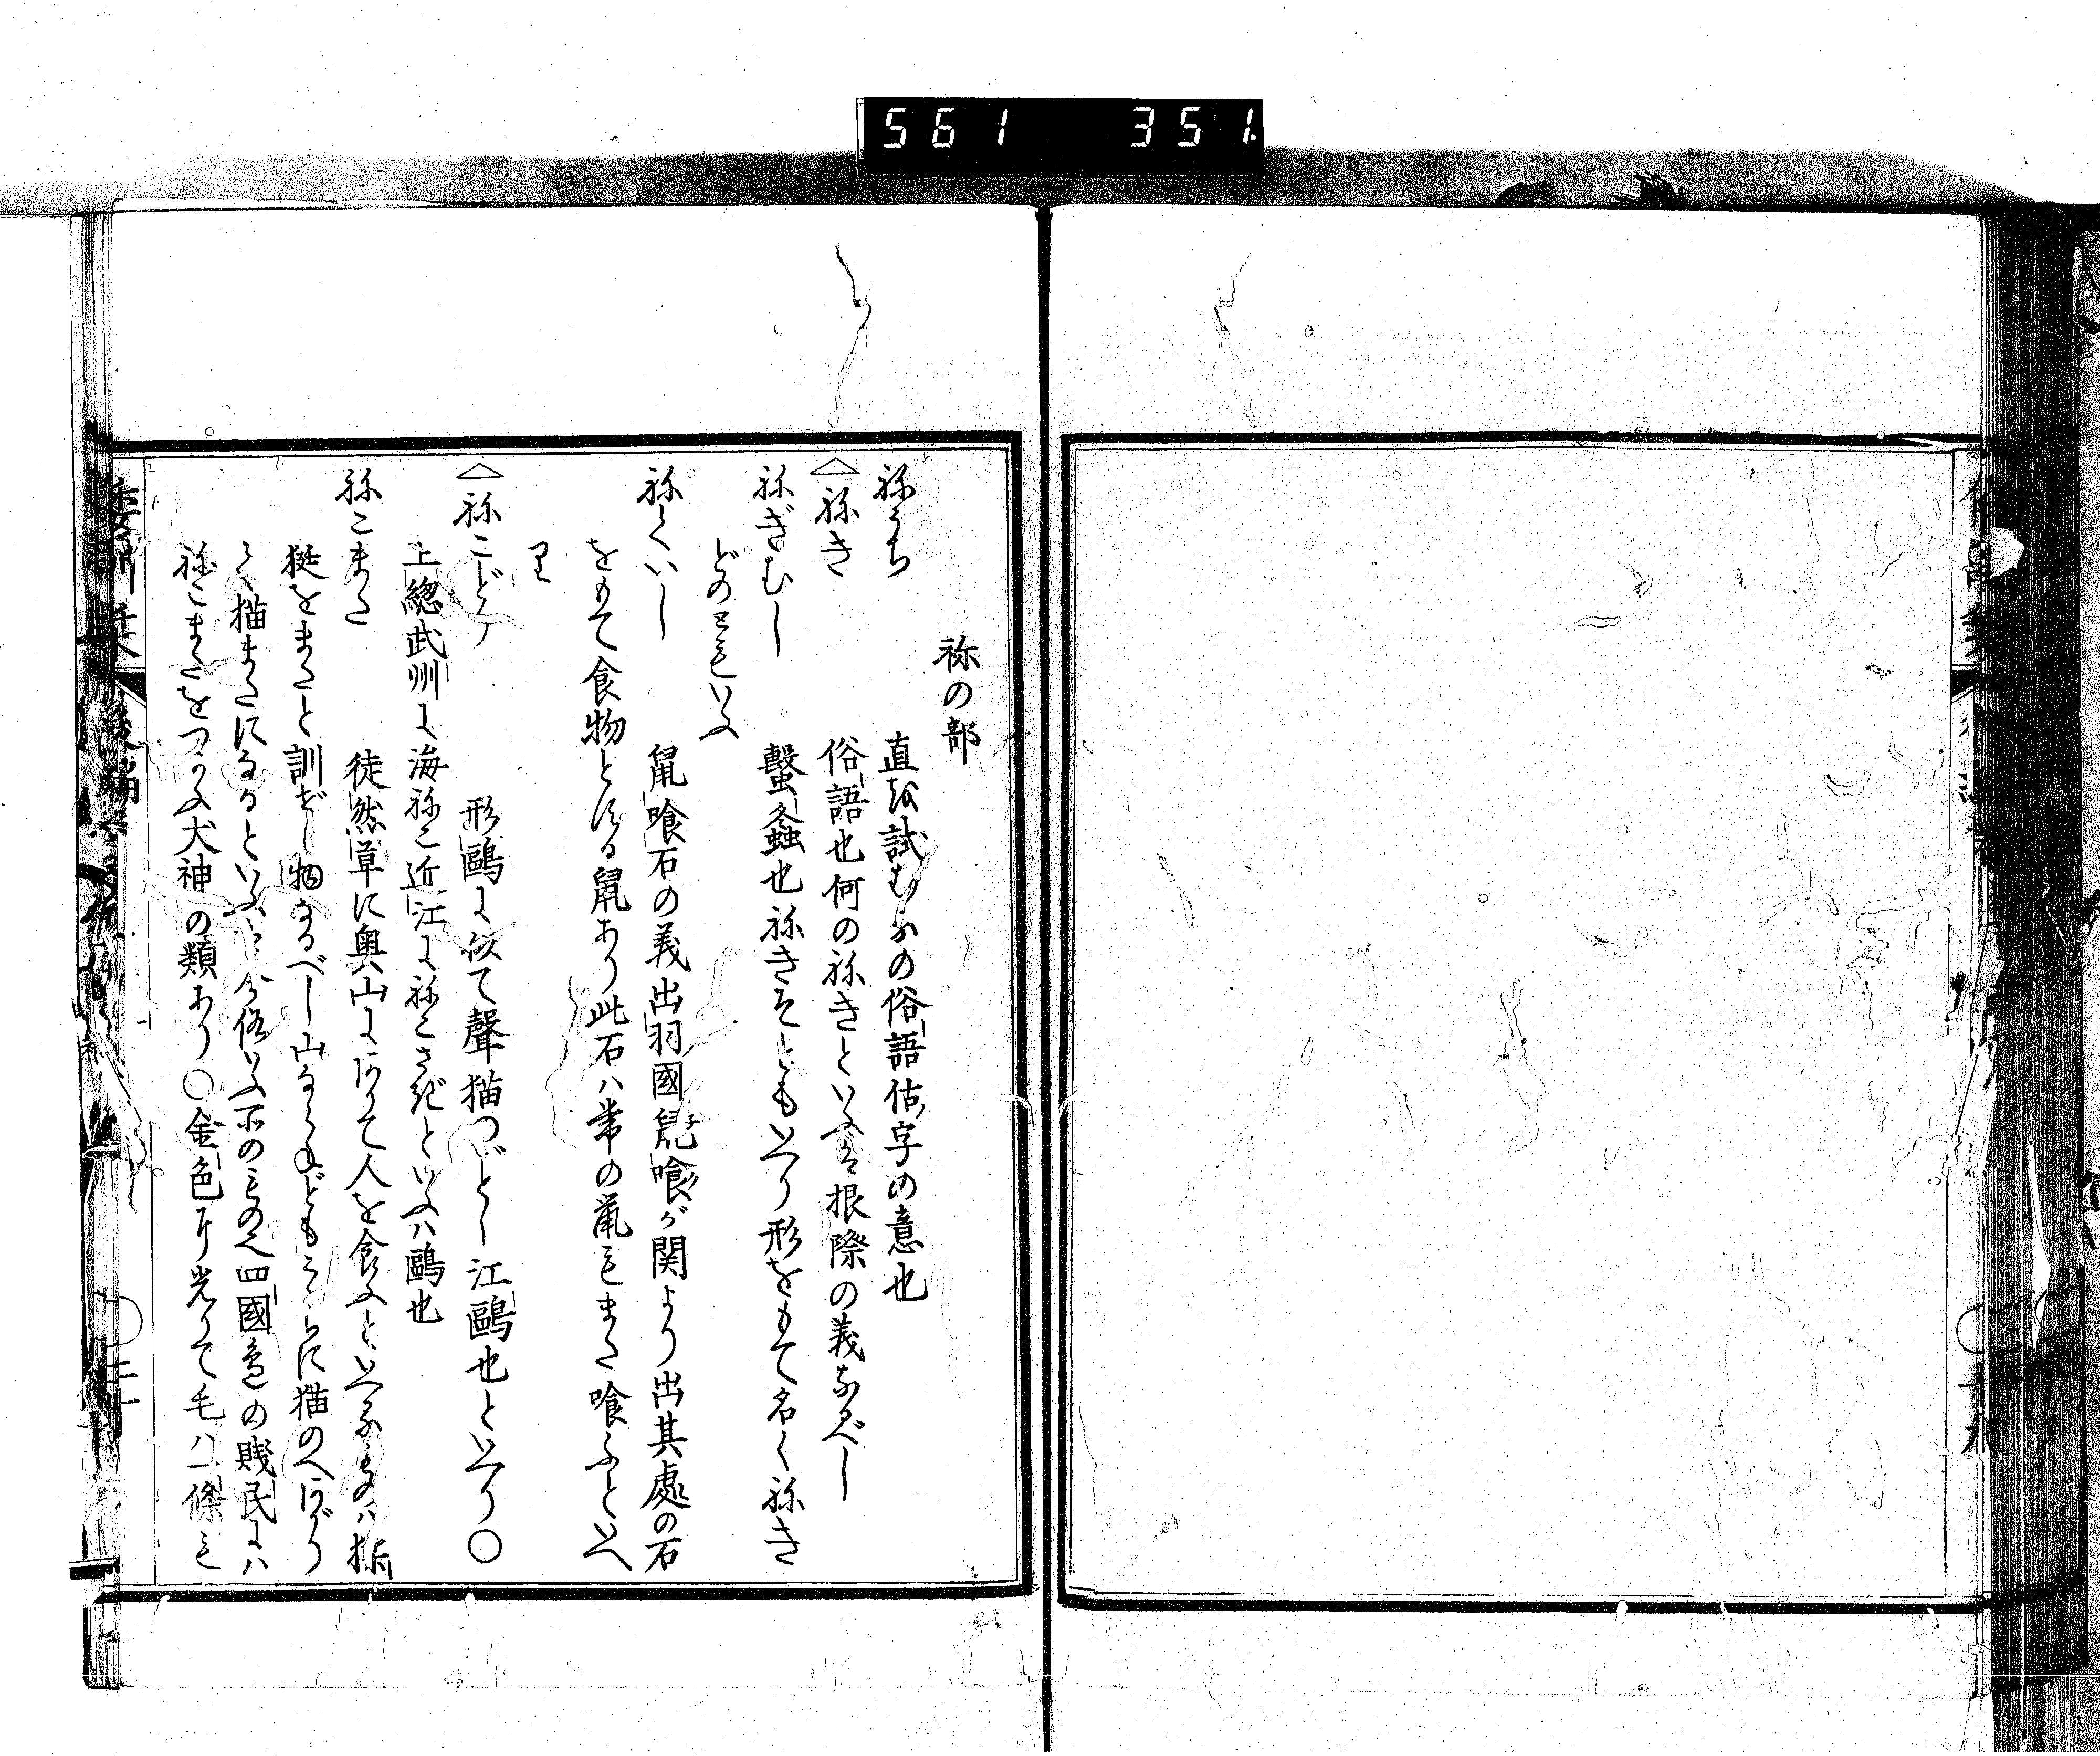 561 351
祢の部
祢うち 直を試むるの俗語估字の意也
△祢き 俗語也何の祢きといふは根際の義なるべし
祢ぎむし 蟿螽也祢きそともいへり形をもて名く祢き
どのともいふ
祢くいし 鼠喰石の義出羽國鼠喰が関より出其處の石
をもて食物とする鼠あり此石ハ常の鼠もまた喰ふといへ
り
△祢こどり 形鷗に似て聲猫のごとし江鷗也といへり〇
上總武州に海祢こ近江に祢こさぎといふハ鷗也
祢こまた 徒然草に奥山にねこまたありて人を食ふといへるもの
挺をまたと訓ぜし物なるべし山ならねどもこゝらに猫のへあがり
て猫またになるといふは今俗いふ所のもの也四國邊の賤民にハ
祢こまたをつかふ犬神の類あり〇金色に光りて毛ハ一條も